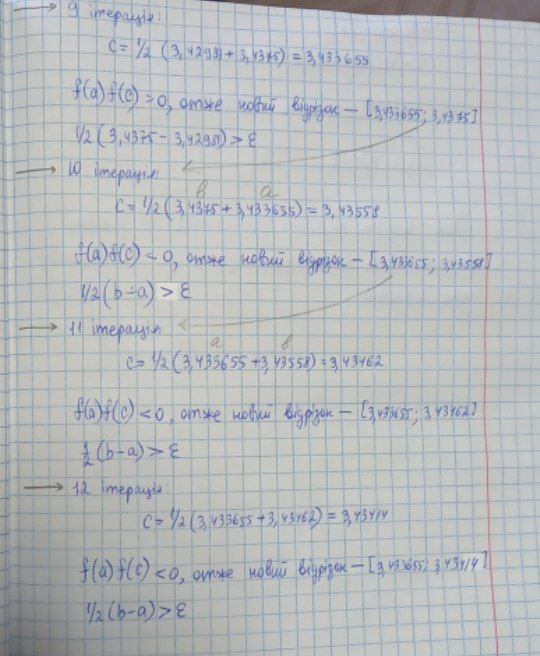 → 9 ітерація:
c = 1/2 (3,42981 + 3,4375) = 3,433655
f(a) f(c) > 0, отже новий відрізок — [3,433655; 3,4375]
1/2 (3,4375 - 3,42981) > ε
→ 10 ітерація:
b a
c = 1/2 (3,4375 + 3,433655) = 3,43558
f(a) f(c) < 0, отже новий відрізок — [3,433655; 3,43558]
1/2 (b - a) > ε
→ 11 ітерація
a b
c = 1/2 (3,433655 + 3,43558) = 3,43462
f(a) f(c) < 0, отже новий відрізок — [3,433655; 3,43462]
1/2 (b-a) > ε
→ 12 ітерація:
c = 1/2 (3,433655 + 3,43462) = 3,43414
f(a) f(c) < 0, отже новий відрізок — [3,433655; 3,43414]
1/2 (b-a) > ε